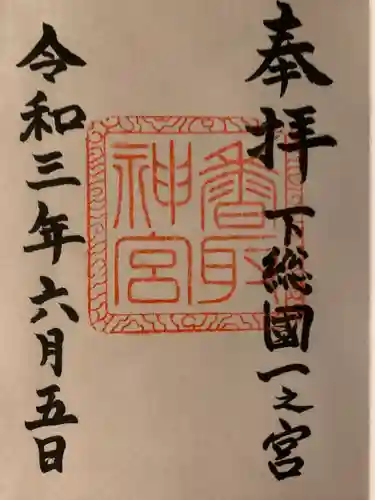 奉拝
下総國一之宮
香取神宮
令和三年六月五日